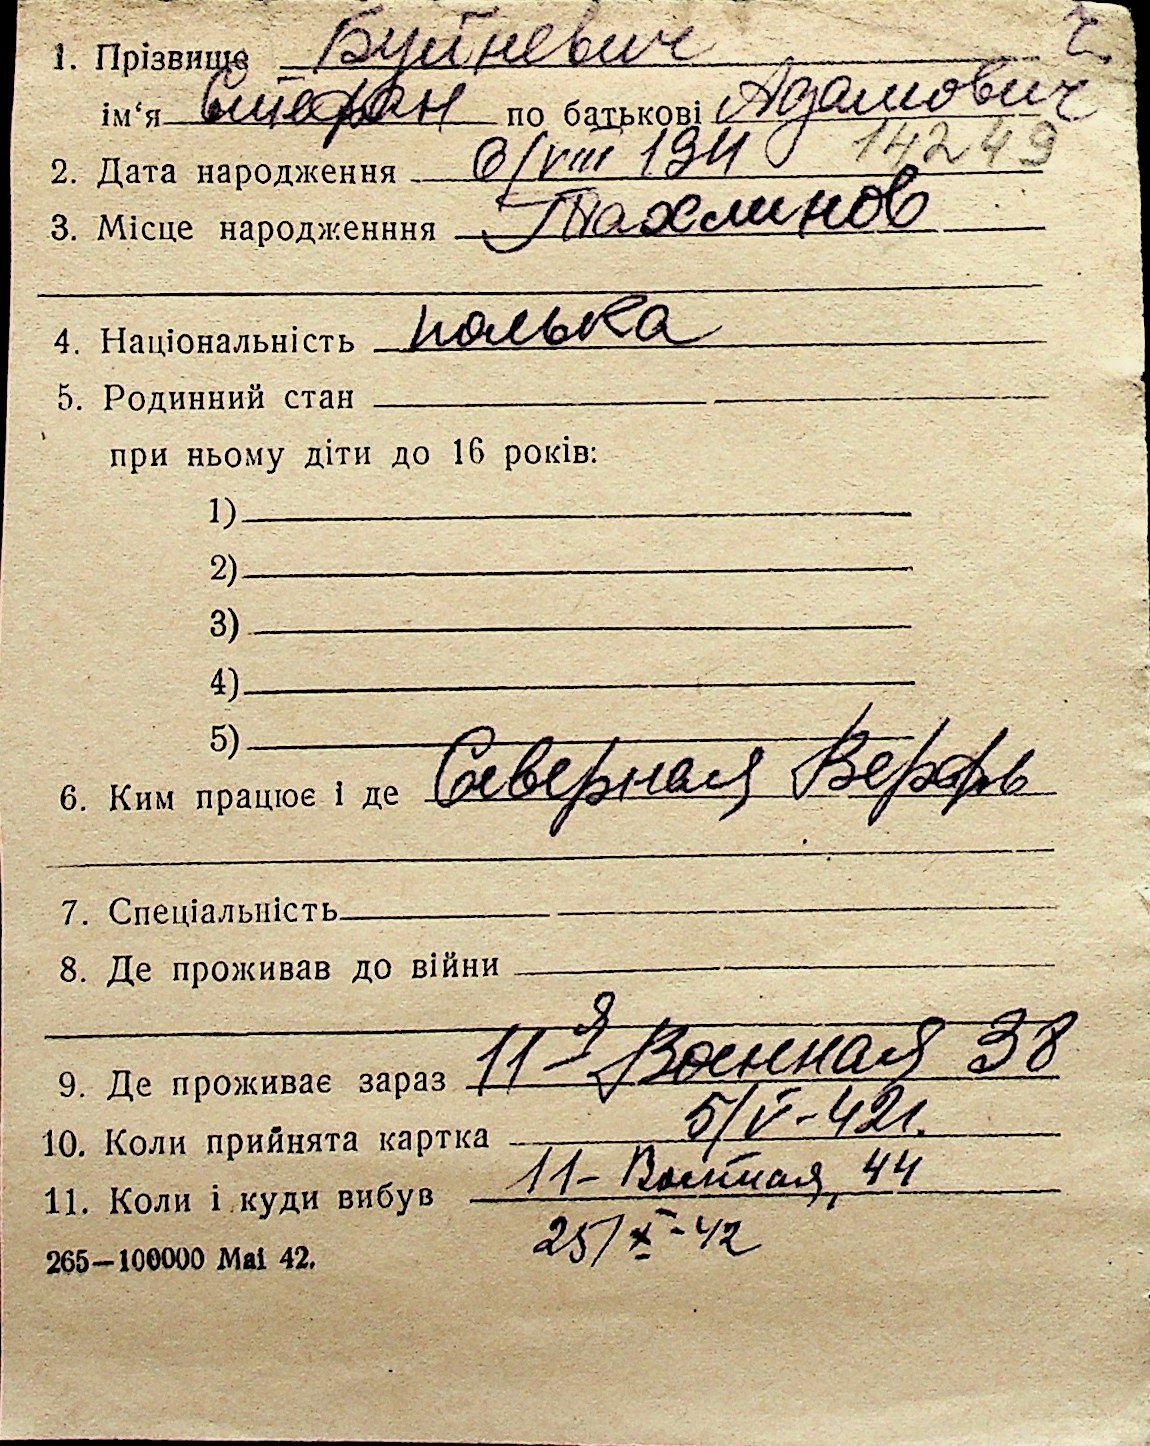 1. Прізвище Буйневич ч.
ім‘я Стефан по батькові Адамович
2. Дата народження 6/VIII 1911 14249
3. Місце народженння Махлинов
4. Національність полька
5. Родинний стан
при ньому діти до 16 років:
1)
2)
3)
4)
5)
6. Ким працює і де Северная Верфь
7. Спеціальність
8. Де проживав до війни
9. Де проживає зараз 11-я Военная 38
10. Коли прийнята картка 5/V-42г.
11. Коли і куди вибув 11-Военная, 44
25/X-42
265—100000 Mai 42.